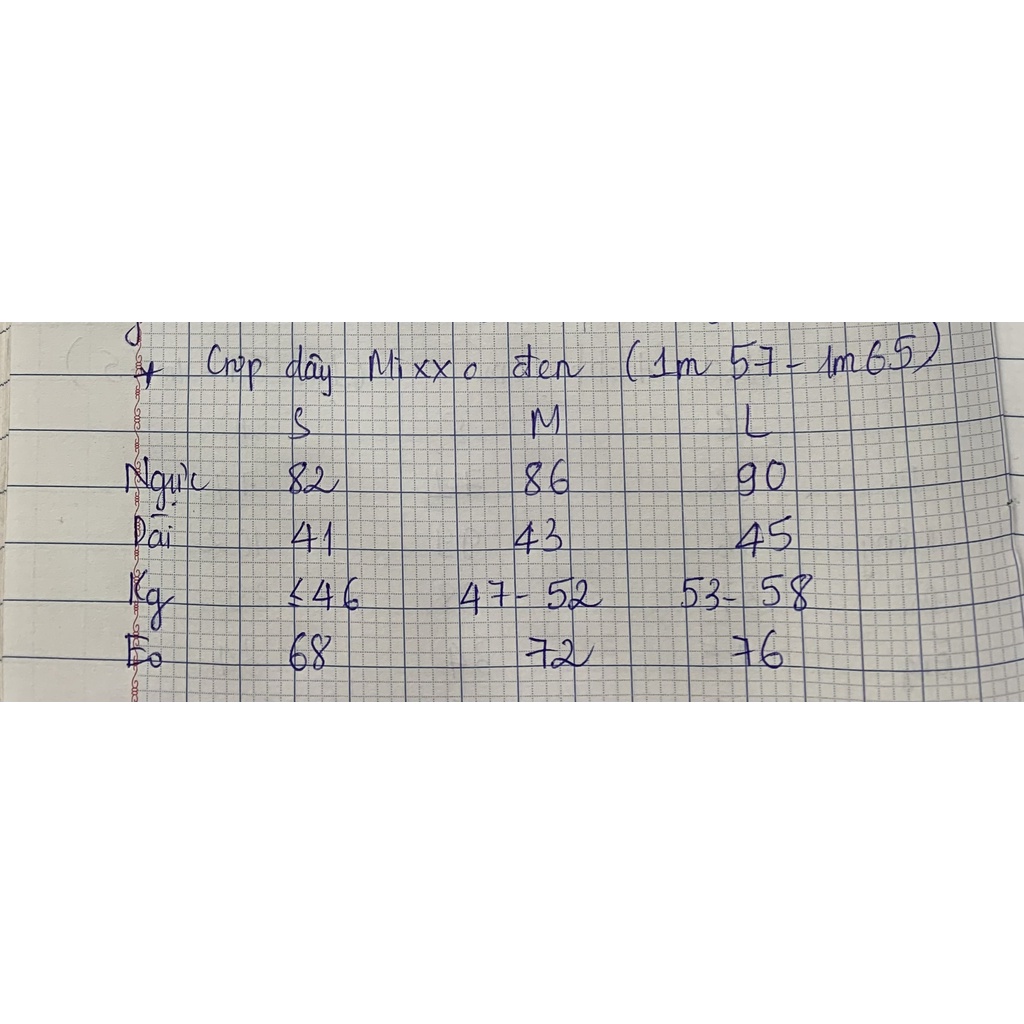 + Crop dây Mixxo đen (1m 57 - 1m65)
S M L
Ngực 82 86 90
Dài 41 43 45
Kg ≤46 47 - 52 53 - 58
Eo 68 72 76